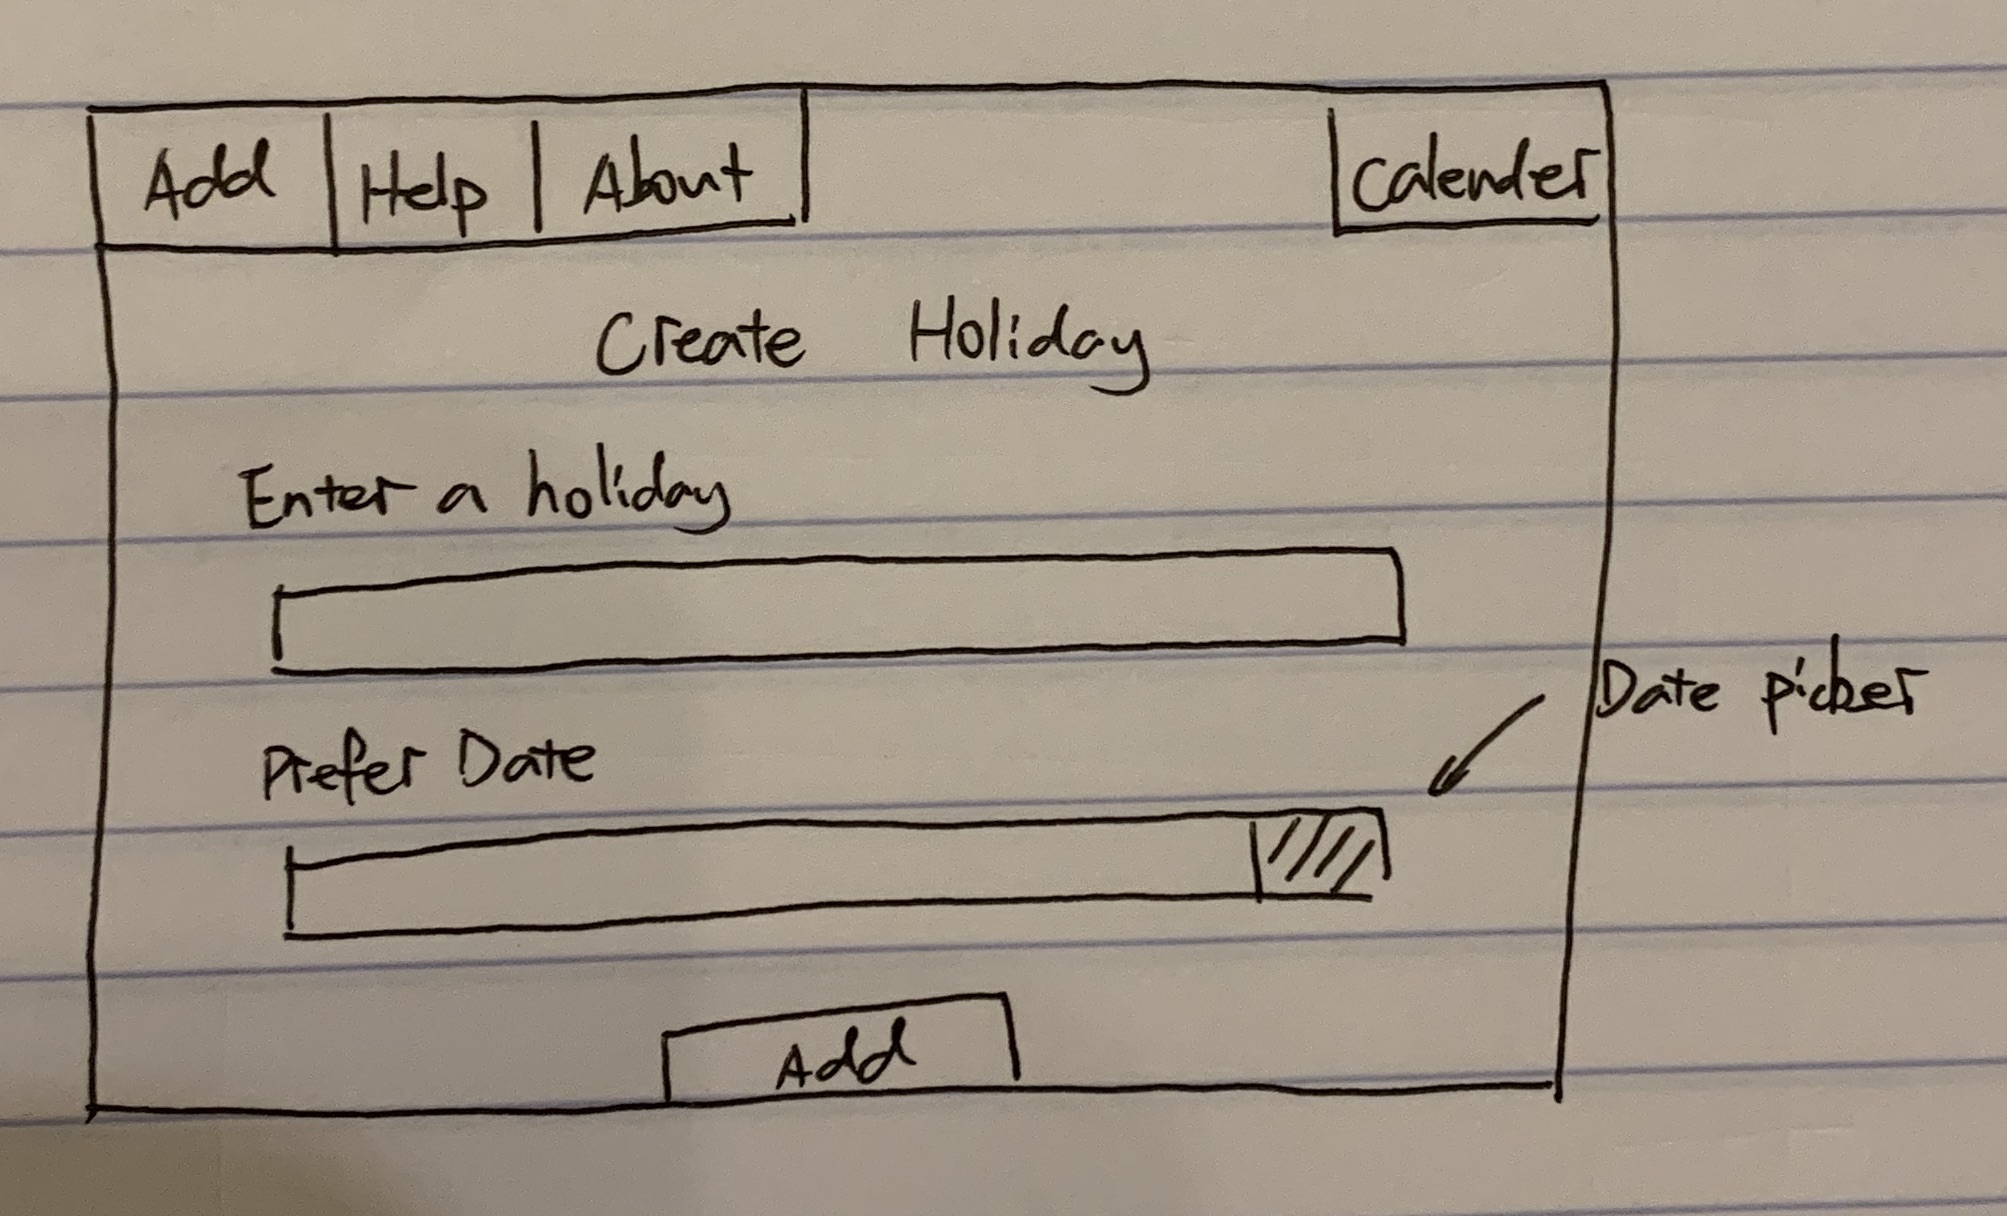 Add Help About Calender
Create Holiday
Enter a holiday
Prefer Date
Date picker
Add